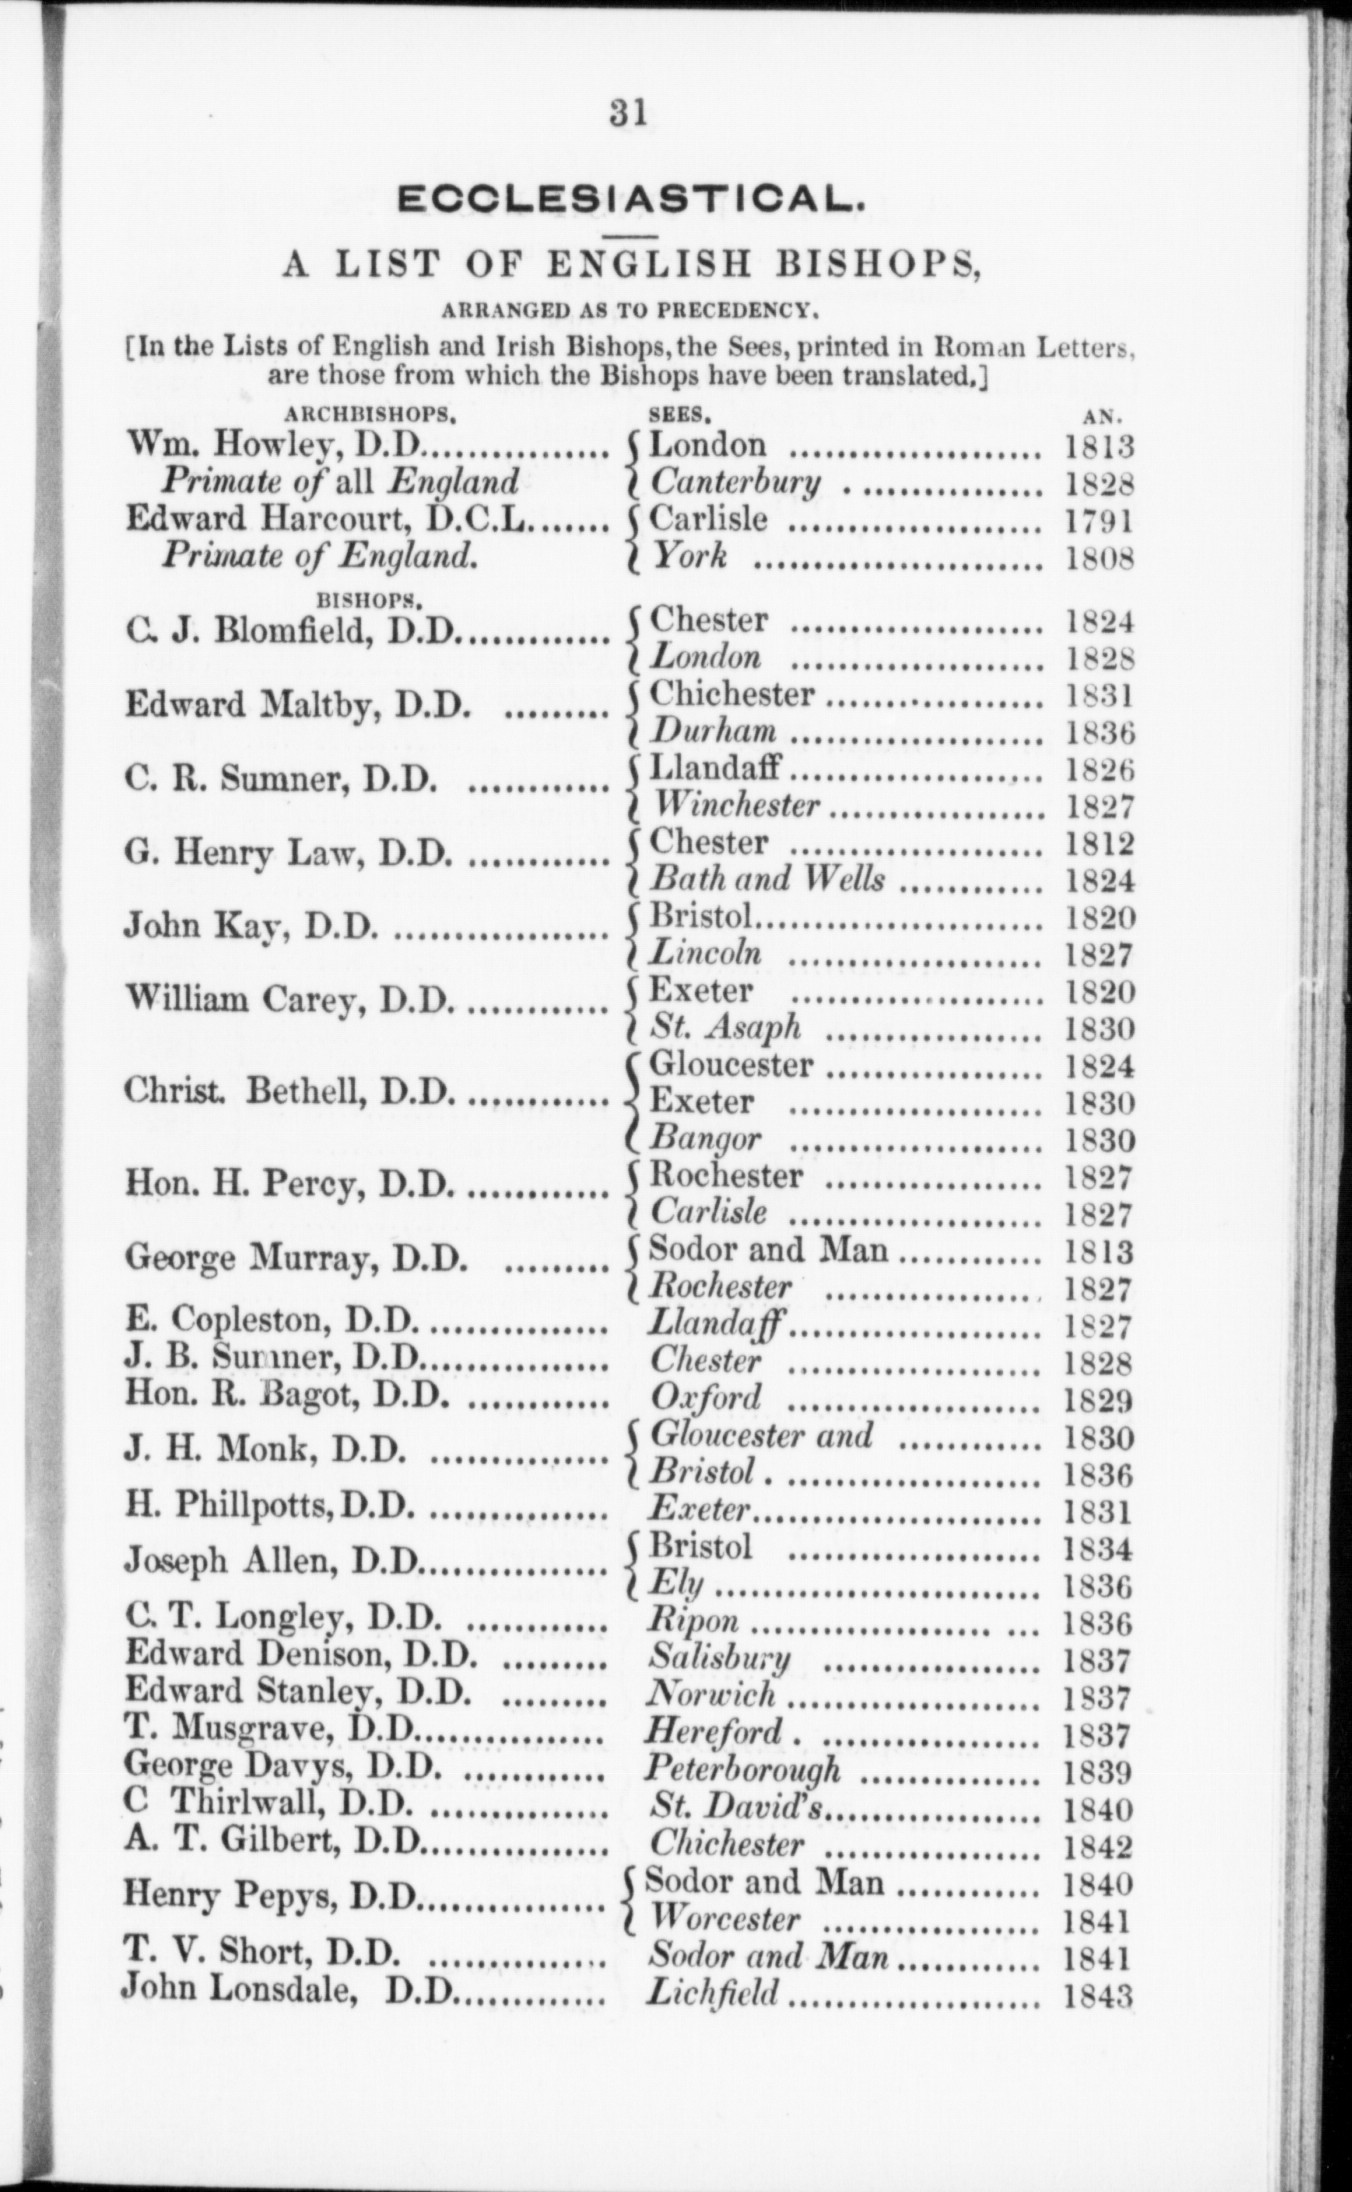 31
ECCLESIASTICAL.
A LIST OF ENGLISH BISHOPS,
ARRANGED AS TO PRECEDENCY.
[In the Lists of English and Irish Bishops, the Sees, printed in Roman Letters,
are those from which the Bishops have been translated.]
ARCHBISHOPS. SEES. AN.
Wm. Howley, D.D. London 1813
Primate of all England Canterbury 1828
Edward Harcourt, D.C.L. Carlisle 1791
Primate of England. York 1808
BISHOPS.
C. J. Blomfield, D.D. Chester 1824
London 1828
Edward Maltby, D.D. Chichester 1831
Durham 1836
C. R. Sumner, D.D. Llandaff 1826
Winchester 1827
G. Henry Law, D.D. Chester 1812
Bath and Wells 1824
John Kay, D.D. Bristol 1820
Lincoln 1827
William Carey, D.D. Exeter 1820
St. Asaph 1830
Christ. Bethell, D.D. Gloucester 1824
Exeter 1830
Bangor 1830
Hon. H. Percy, D.D. Rochester 1827
Carlisle 1827
George Murray, D.D. Sodor and Man 1813
Rochester 1827
E. Copleston, D.D. Llandaff 1827
J. B. Sumner, D.D. Chester 1828
Hon. R. Bagot, D.D. Oxford 1829
J. H. Monk, D.D. Gloucester and 1830
Bristol 1836
H. Phillpotts, D.D. Exeter 1831
Joseph Allen, D.D. Bristol 1834
Ely 1836
C. T. Longley, D.D. Ripon 1836
Edward Denison, D.D. Salisbury 1837
Edward Stanley, D.D. Norwich 1837
T. Musgrave, D.D. Hereford 1837
George Davys, D.D. Peterborough 1839
C Thirlwall, D.D. St. David's 1840
A. T. Gilbert, D.D. Chichester 1842
Henry Pepys, D.D. Sodor and Man 1840
Worcester 1841
T. V. Short, D.D. Sodor and Man 1841
John Lonsdale, D.D. Lichfield 1843